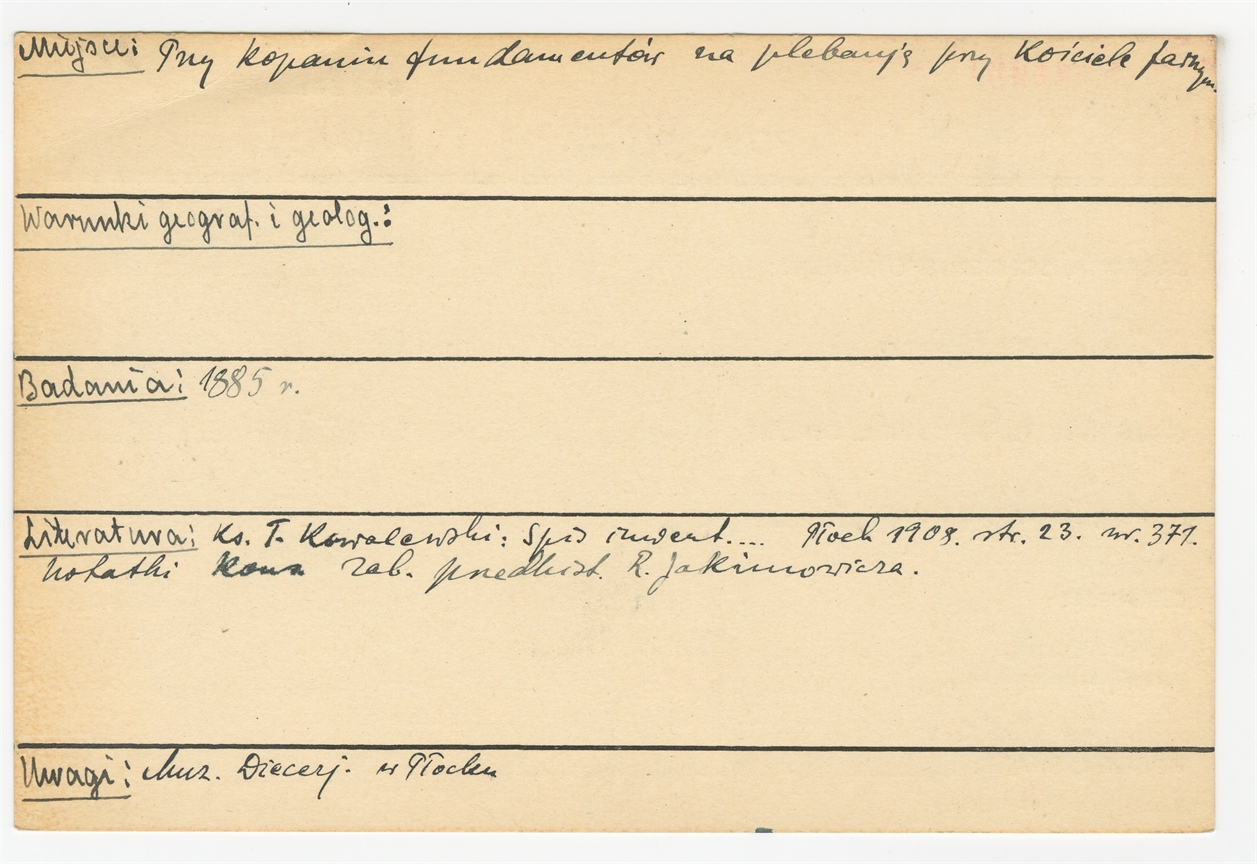 Miejsce: Przy kopaniu fundamentów na plebanję przy Kościele farnym.
Warunki geograf. i geolog.:
Badania: 1885 r.
Literatura: Ks. T. Kowalewski: Spis inwent.... Płock 1909. str. 23. nr. 371.
Notatki Kons zab. przedhist. R. Jakimowicza.
Uwagi: Muz. Diecezj. w Płocku